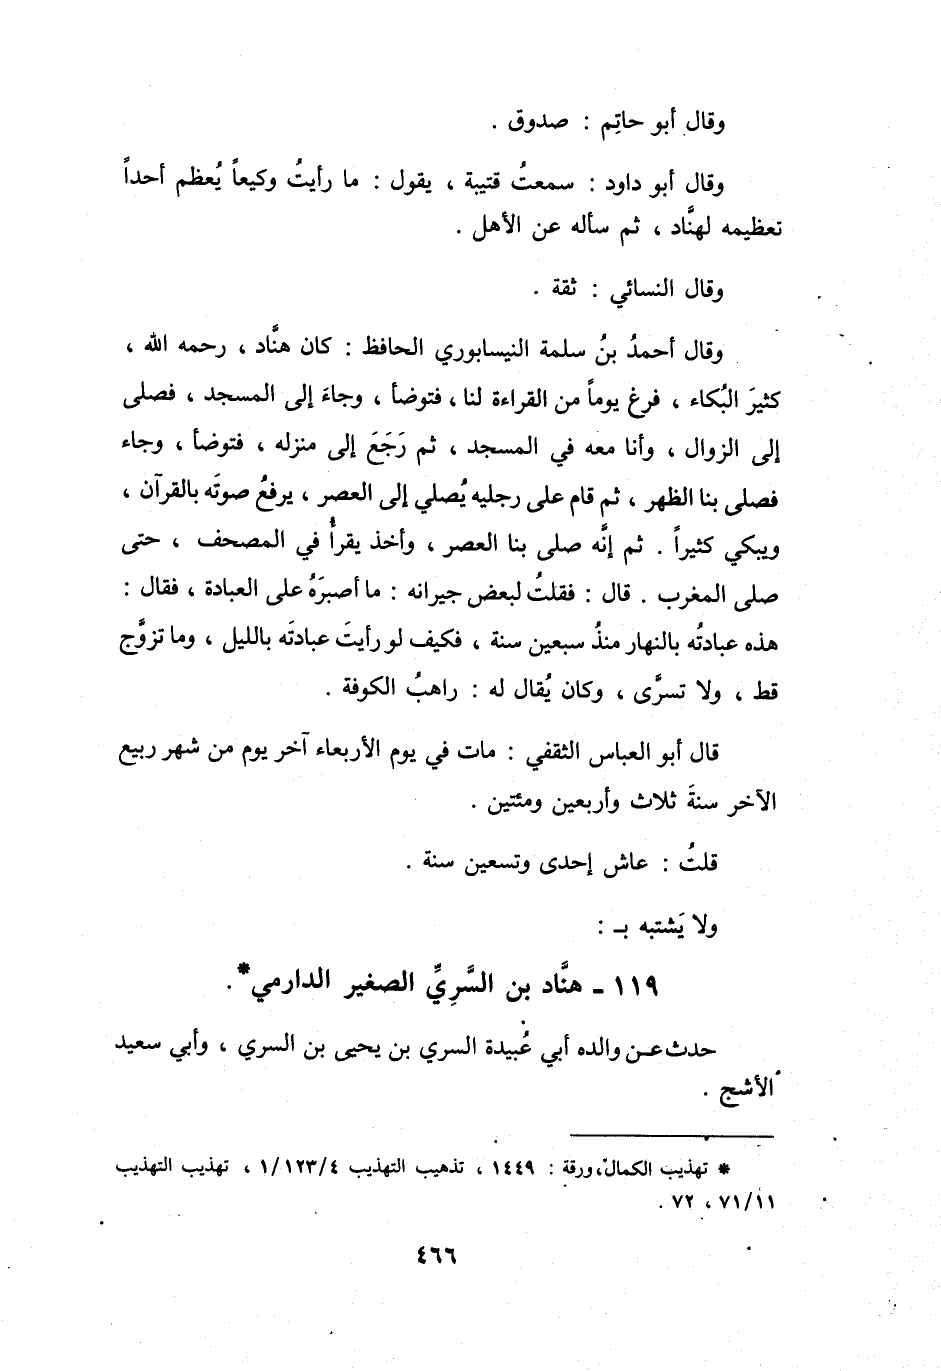 وقال أبو حاتِم : صدوق .
وقال أبو داود : سمعتُ قتيبة ، يقول : ما رأيتُ وكيعاً يُعظم أحداً
تعظيمه لهنَّاد ، ثم سأله عن الأهل .
وقال النسائي : ثقة .
وقال أحمدُ بنُ سلمة النيسابوري الحافظ : كان هنَّاد ، رحمه الله ،
كثيرَ البُكاء ، فرغ يوماً من القراءة لنا ، فتوضأ ، وجاءَ إلى المسجد ، فصلى
إلى الزوال ، وأنا معه في المسجد ، ثم رَجَعَ إلى منزله ، فتوضأ ، وجاء
فصلى بنا الظهر ، ثم قام على رجليه يُصلي إلى العصر ، يرفعُ صوتَه بالقرآن ،
ويبكي كثيراً . ثم إنَّه صلى بنا العصر ، وأخذ يقرأُ في المصحف ، حتى
صلى المغرب . قال : فقلتُ لبعض جيرانه : ما أصبرَهُ على العبادة ، فقال :
هذه عبادتُه بالنهار منذُ سبعين سنة ، فكيف لو رأيتَ عبادتَه بالليل ، وما تزوَّج
قط ، ولا تسرَّى ، وكان يُقال له : راهبُ الكوفة .
قال أبو العباس الثقفي : مات في يوم الأربعاء آخر يوم من شهر ربيع
الآخر سنةَ ثلاث وأربعين ومئتين .
قلتُ : عاش إحدى وتسعين سنة .
ولا يَشتبه بـ :
١١٩ - هنَّاد بن السَّرِيِّ الصغير الدارمي* .
حدث عن والده أبي عُبيدة السري بن يحيى بن السري ، وأبي سعيد
الأشج .
* تهذيب الكمال ، ورقة : ١٤٤٩ ، تذهيب التهذيب ١/١٢٣/٤ ، تهذيب التهذيب
٧١/١١ ، ٧٢ .
٤٦٦